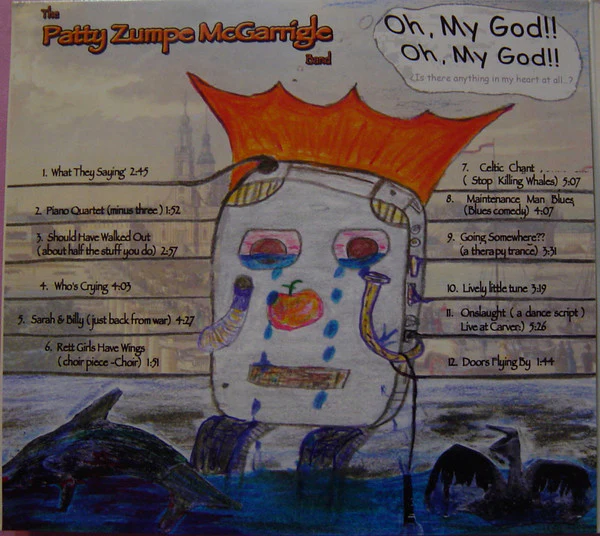 The
Patty Zumpe McGarrigle
Band
Oh, My God!!
Oh, My God!!
¿Is there anything in my heart at all..?
1. What They Saying' 2:45
2. Piano Quartet (minus three) 1:52
3. Should Have Walked Out
(about half the stuff you do) 2:57
4. Who's Crying 4:03
5. Sarah & Billy (just back from war) 4:27
6. Rett Girls Have Wings
(choir piece -Choir) 1:51
7. Celtic Chant
( Stop Killing Whales) 5:07
8. Maintenance Man Blues
(Blues comedy) 4:07
9. Going Somewhere??
(a therapy trance) 3:31
10. Lively little tune 3:19
11. Onslaught ( a dance script )
Live at Carver) 5:26
12. Doors Flying By 1:44